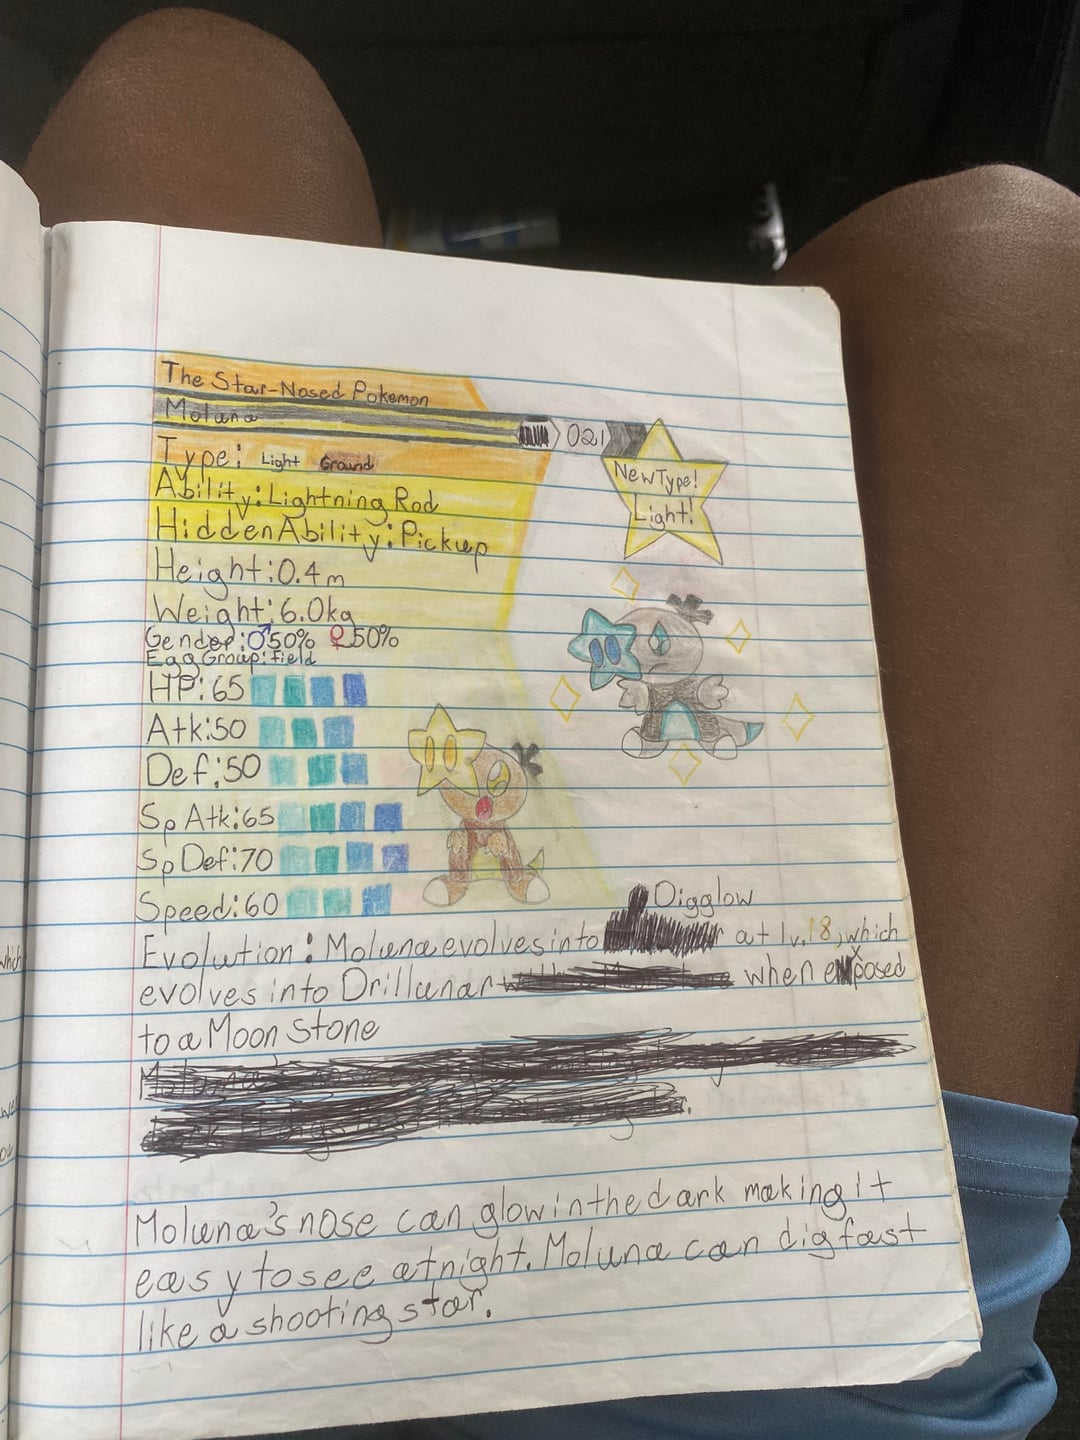 The Star-Nosed Pokemon
Moluna
021
Type: Light Ground
New Type!
Light!
Ability: Lightning Rod
Hidden Ability: Pickup
Height: 0.4m
Weight: 6.0kg
Gender: ♂50% ♀50%
Egg Group: Field
HP: 65
Atk: 50
Def: 50
Sp Atk: 65
Sp Def: 70
Speed: 60
Digglow
Evolution: Moluna evolves into at lv. 18, which
evolves into Drillunar when exposed
to a Moon Stone
Moluna's nose can glow in the dark making it
easy to see at night. Moluna can dig fast
like a shooting star.
which